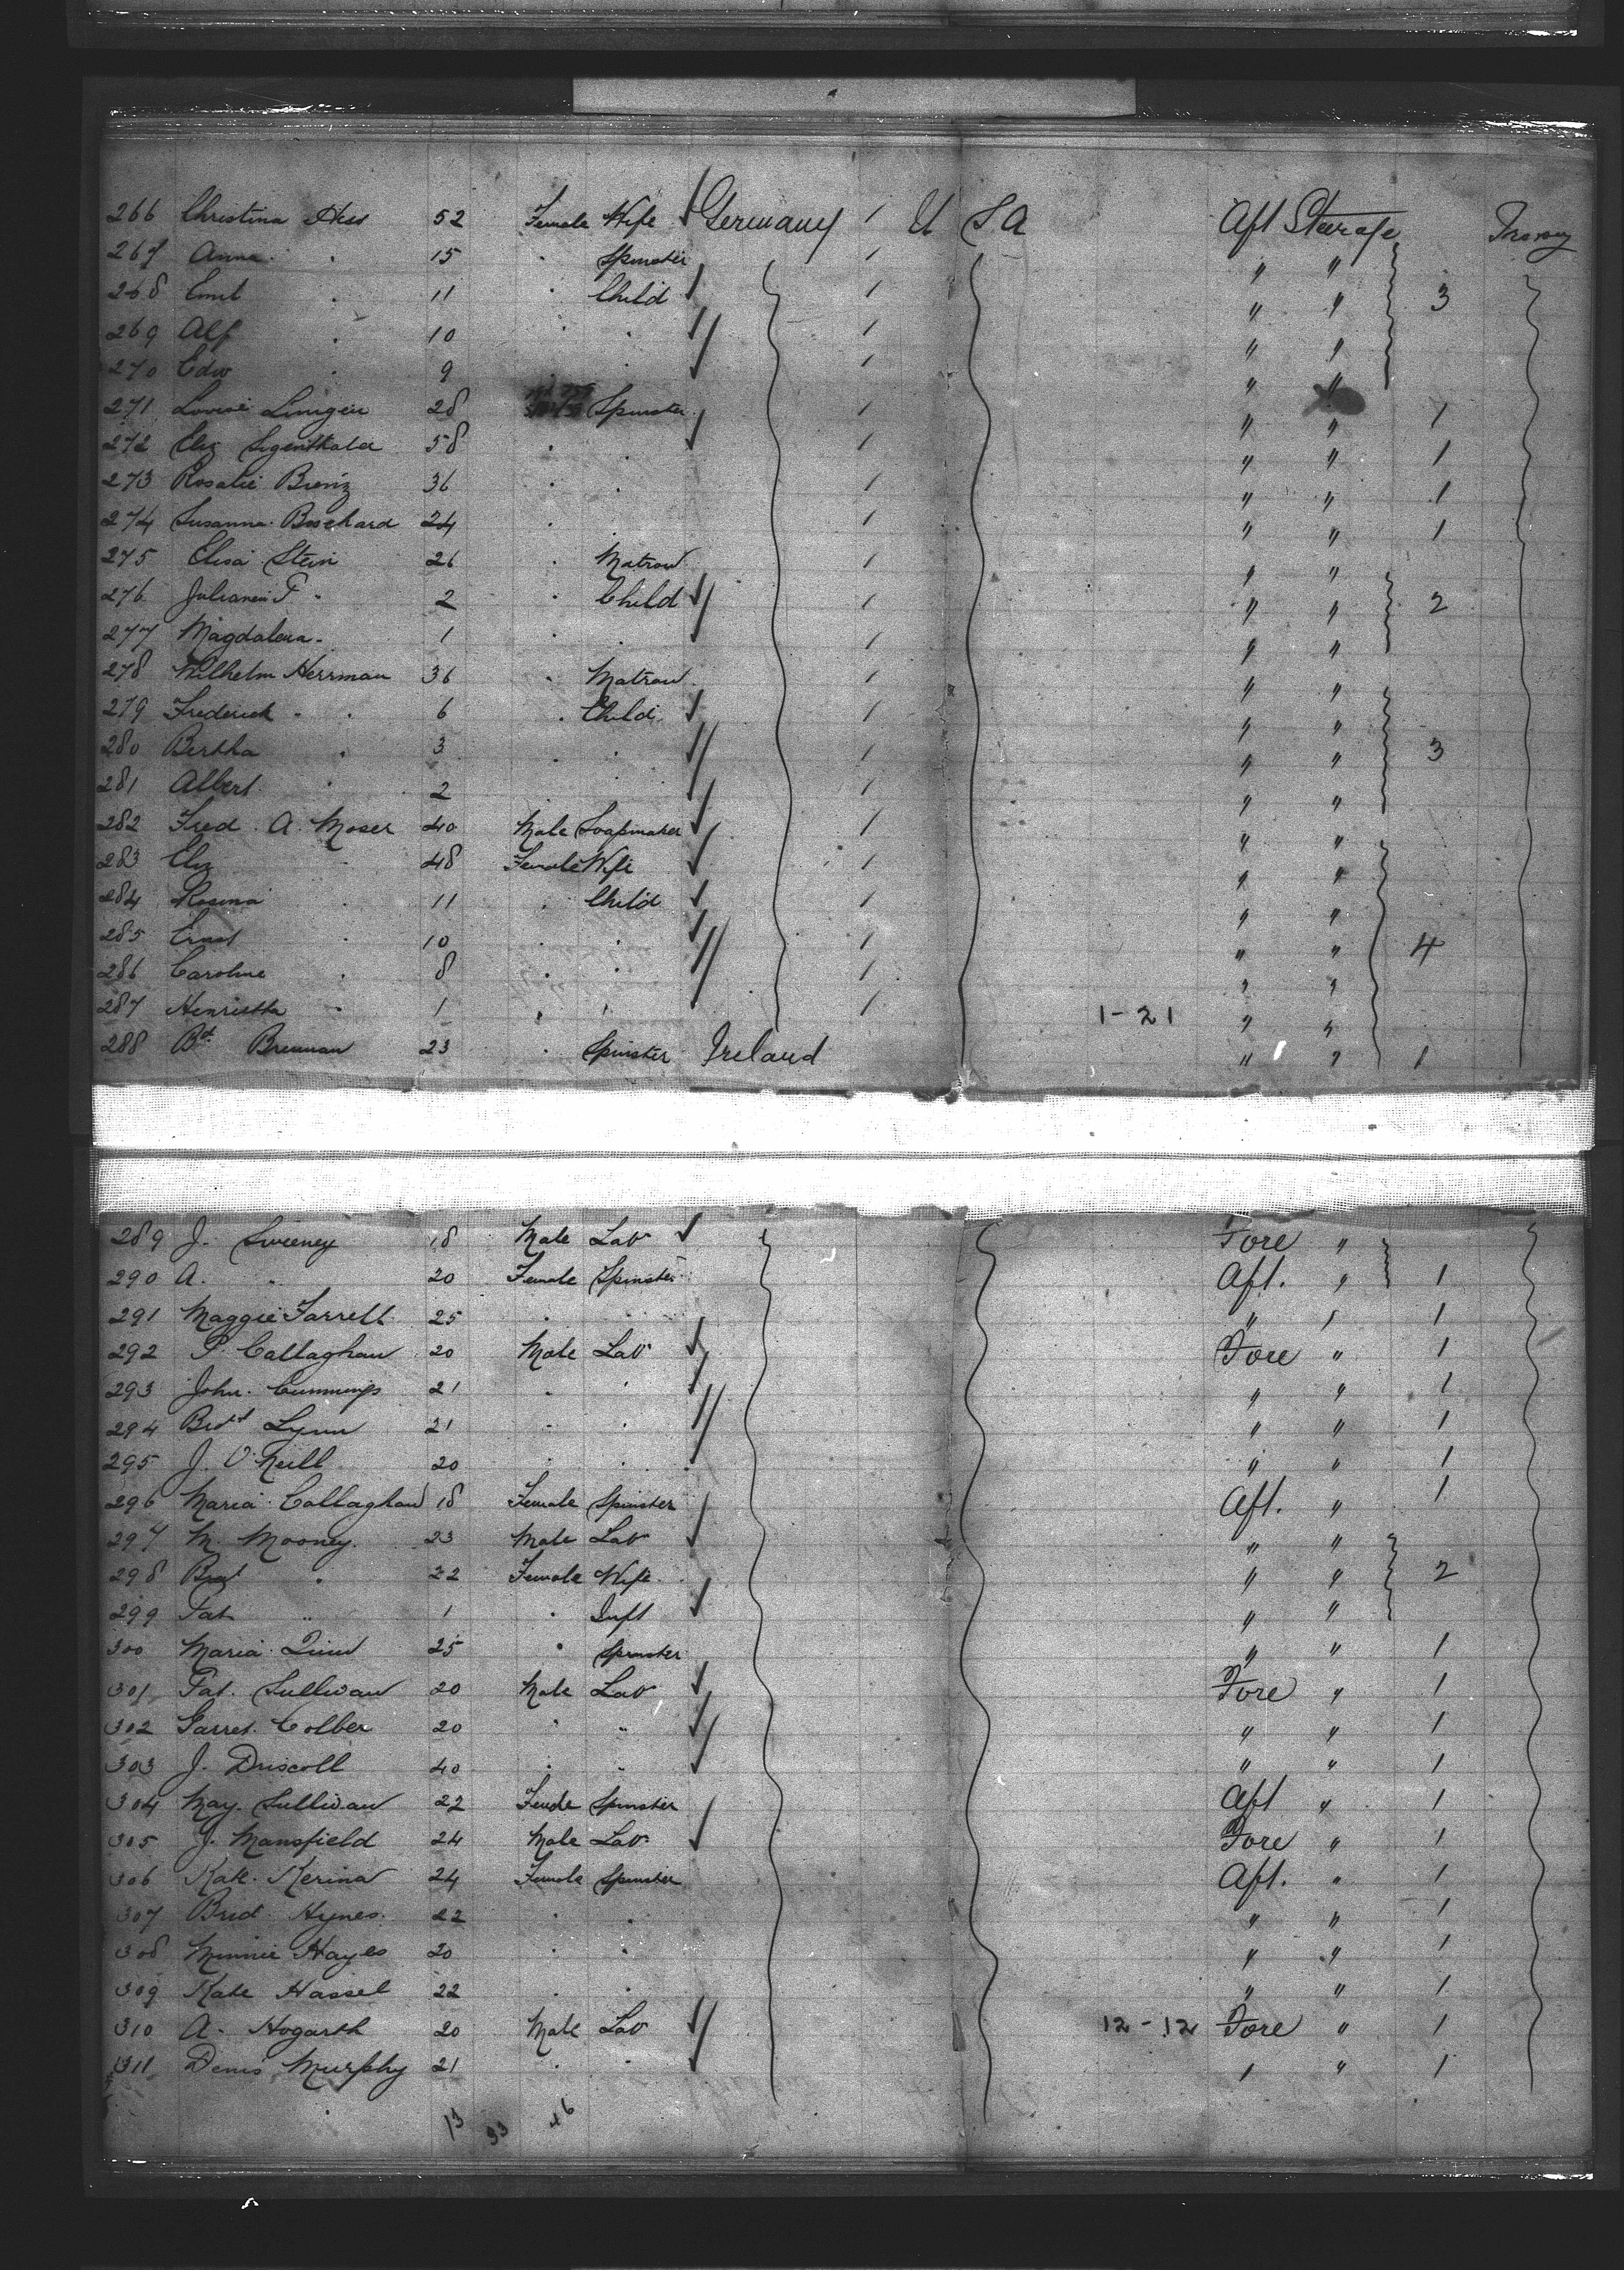 266 Christina Hess 52 Female Wife Germany / U S A Aft Steerage
267 Anna " 15 " Spinster / " "
268 Emil " 11 " Child / " " 3
269 Alf " 10 " " / " "
270 Edw " 9 / " "
271 Louise 28 Spinster / " " 1
272 Eliz Sigenthaler 58 " " / " " 1
273 Rosalie Brenz 36 " " / " " 1
274 Susanna Boschard 24 " / " " 1
275 Elisa Stein 26 " Matron / " "
276 F " 2 " Child / " " 2
277 Magdalena " 1 " " / " "
278 Wilhelm Herrman 36 " Matron / " "
279 Frederick " " 6 " Child / " "
280 Bertha " 3 " " / " " 3
281 Albert " 2 " " / " "
282 Fred A. Moser 40 Male Soapmaker / " "
283 Eliz " 48 Female Wife / " "
284 Rosina " 11 " Child / " "
285 Ernst " 10 " " / " " 4
286 Caroline " 8 " " / " "
287 Henrietta " 1 " " / 1-21 " "
288 Bt. Brennan 23 " Spinster Ireland " " 1
289 J. Sweeney 18 Male Lab Fore "
290 A. " 20 Female Spinster Aft. " 1
291 Maggie Farrell 25 " " " " 1
292 P. Callaghan 20 Male Lab Fore " 1
293 John Cummings 21 " " " " 1
294 Lynn 21 " " " " 1
295 J. O'Neill 20 " " " " 1
296 Maria Callaghan 18 Female Spinster Aft. " 1
297 M. Mooney 23 Male Lab " "
298 Brid " 22 Female Wife " " 2
299 Pat " 1 " Inft " "
300 Maria Quinn 25 " Spinster " " 1
301 Pat. Sullivan 20 Male Lab Fore " 1
302 Garret Colber 20 " " " " 1
303 J. Driscoll 40 " " " " 1
304 May. Sullivan 22 Female Spinster Aft " 1
305 J. Mansfield 24 Male Lab Fore " 1
306 Kate Kerina 24 Female Spinster Aft. " 1
307 Brid. Hynes 22 " " " " 1
308 Minnie Hayes 20 " " " " 1
309 Kate Hassel 22 " " " " 1
310 A. Hogarth 20 Male Lab 12-12 Fore " 1
311 Denis Murphy 21 " " " " 1
13 33 46